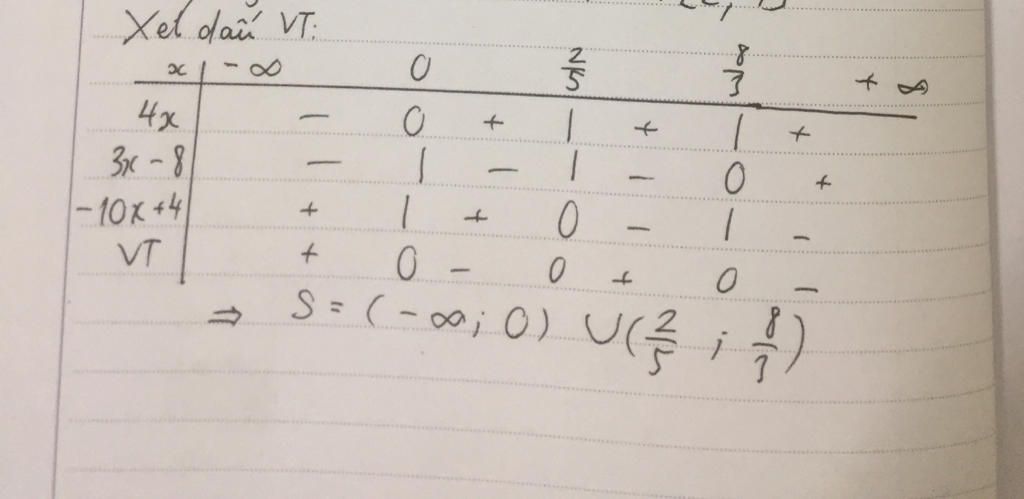 Xét dấu VT:
x | -∞ 0 2/5 8/3 +∞
4x | - 0 + | + | +
3x - 8 | - | - | - 0 +
-10x + 4 | + | + 0 - | -
VT | + 0 - 0 + 0 -
⇒ S = (-∞; 0) ∪ (2/5 ; 8/3)